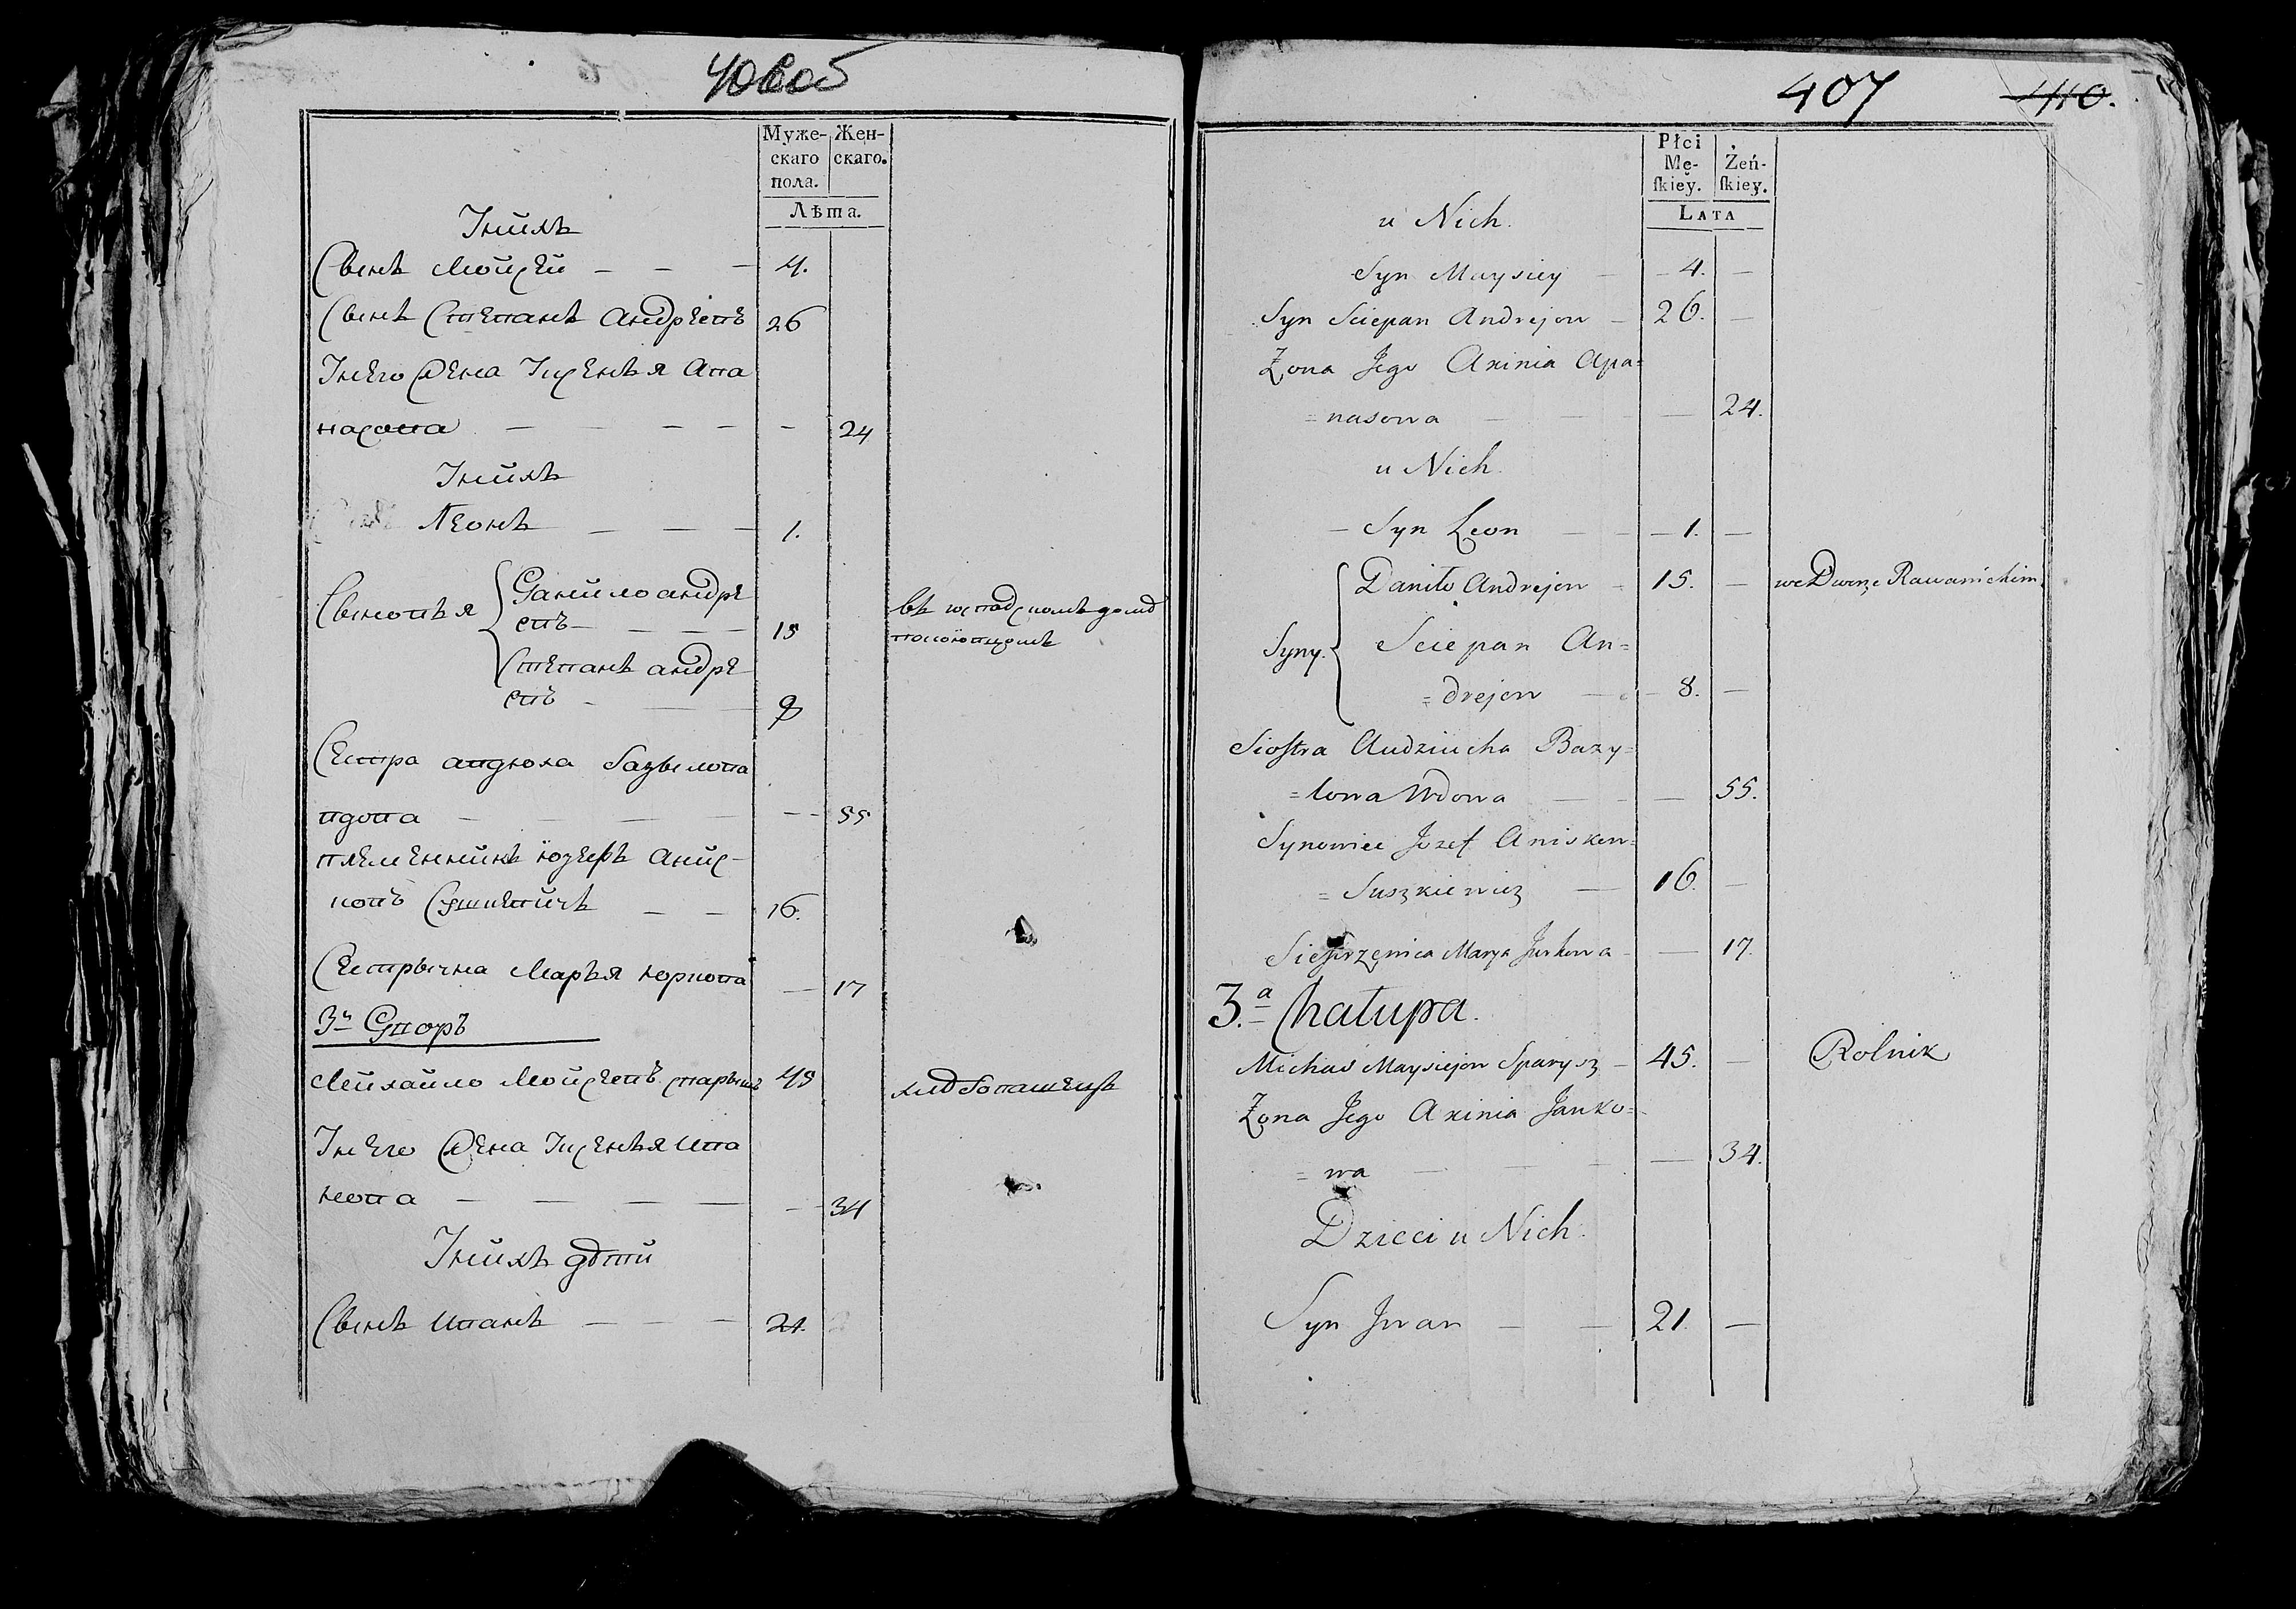 406об
Муже-
скаго
пола.
Жен-
скаго.
Лѣта.
Унихъ
Сынъ Мойсей — — — 4.
Сынъ Степанъ Андреевъ 26
Унего жена Ксенья Апа
насова — — — — — 24
Унихъ
Леонъ — — — 1.
Сыновья
Данило андре
евъ — — — — 15
Степанъ андре
евъ — — — 8
въ господскомъ домѣ
Сестра авдюха базылова
вдова — — — — — 55
племенникъ юзефъ анис-
ковъ Сушкевичъ — — 16.
Сестрычна Марья юркова — 17
3й Дворъ
Михайло Мойсеевъ спарышъ 45
хлѣбопашецъ
Унего жена Ксенья ива
нова — — — — — 34
Унихъ дѣти
Сынъ иванъ — — — 21.
407 410.
Płci
Mę-
skiey.
Żeń-
skiey.
LATA
u Nich.
Syn Maysiey — — 4. —
Syn Sciepan Andrejow — 26. —
Żona Jego Axinia Apa=
=nasowa — — — 24.
u Nich.
— Syn Leon — — — 1. —
Syny.
Daniło Andrejow — 15. — we Dworze Rawanickim
Sciepan An=
=drejow — — 8. —
Siostra Audziucha Bazy=
=lowa Wdowa — — — 55.
Synowiec Jozef Aniskow=
= Suszkiewicz — 16. —
Siestrzenica Marya Jurkowa — — 17.
3.a Chałupa.
Michaś Maysiejow Sparysz — 45. — Rolnik
Żona Jego Axinia Janko=
= wa — — — — 34.
Dzieci u Nich.
Syn Jwan — — 21. —